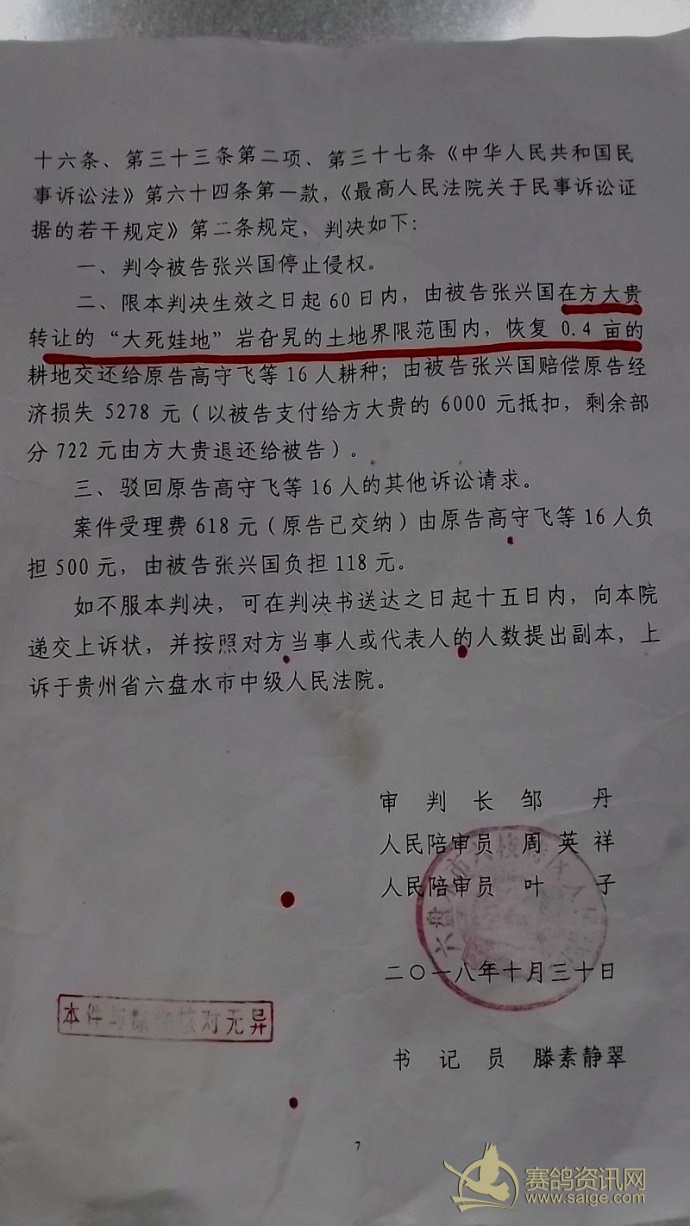 十六条、第三十三条第二项、第三十七条《中华人民共和国民
事诉讼法》第六十四条第一款,《最高人民法院关于民事诉讼证
据的若干规定》第二条规定，判决如下：
一、判令被告张兴国停止侵权。
二、限本判决生效之日起60日内，由被告张兴国在方大贵
转让的“大死娃地”岩旮旯的土地界限范围内，恢复0.4亩的
耕地交还给原告高守飞等16人耕种；由被告张兴国赔偿原告经
济损失5278元（以被告支付给方大贵的6000元抵扣，剩余部
分722元由方大贵退还给被告）。
三、驳回原告高守飞等16人的其他诉讼请求。
案件受理费618元（原告已交纳）由原告高守飞等16人负
担500元，由被告张兴国负担118元。
如不服本判决，可在判决书送达之日起十五日内，向本院
递交上诉状，并按照对方当事人或代表人的人数提出副本，上
诉于贵州省六盘水市中级人民法院。
审判长 邹丹
人民陪审员 周英祥
人民陪审员 叶子
六盘水市
二〇一八年十月三十日
本件与 核对无异
书记员 滕素静翠
7
赛鸽资讯网
www.saige.com